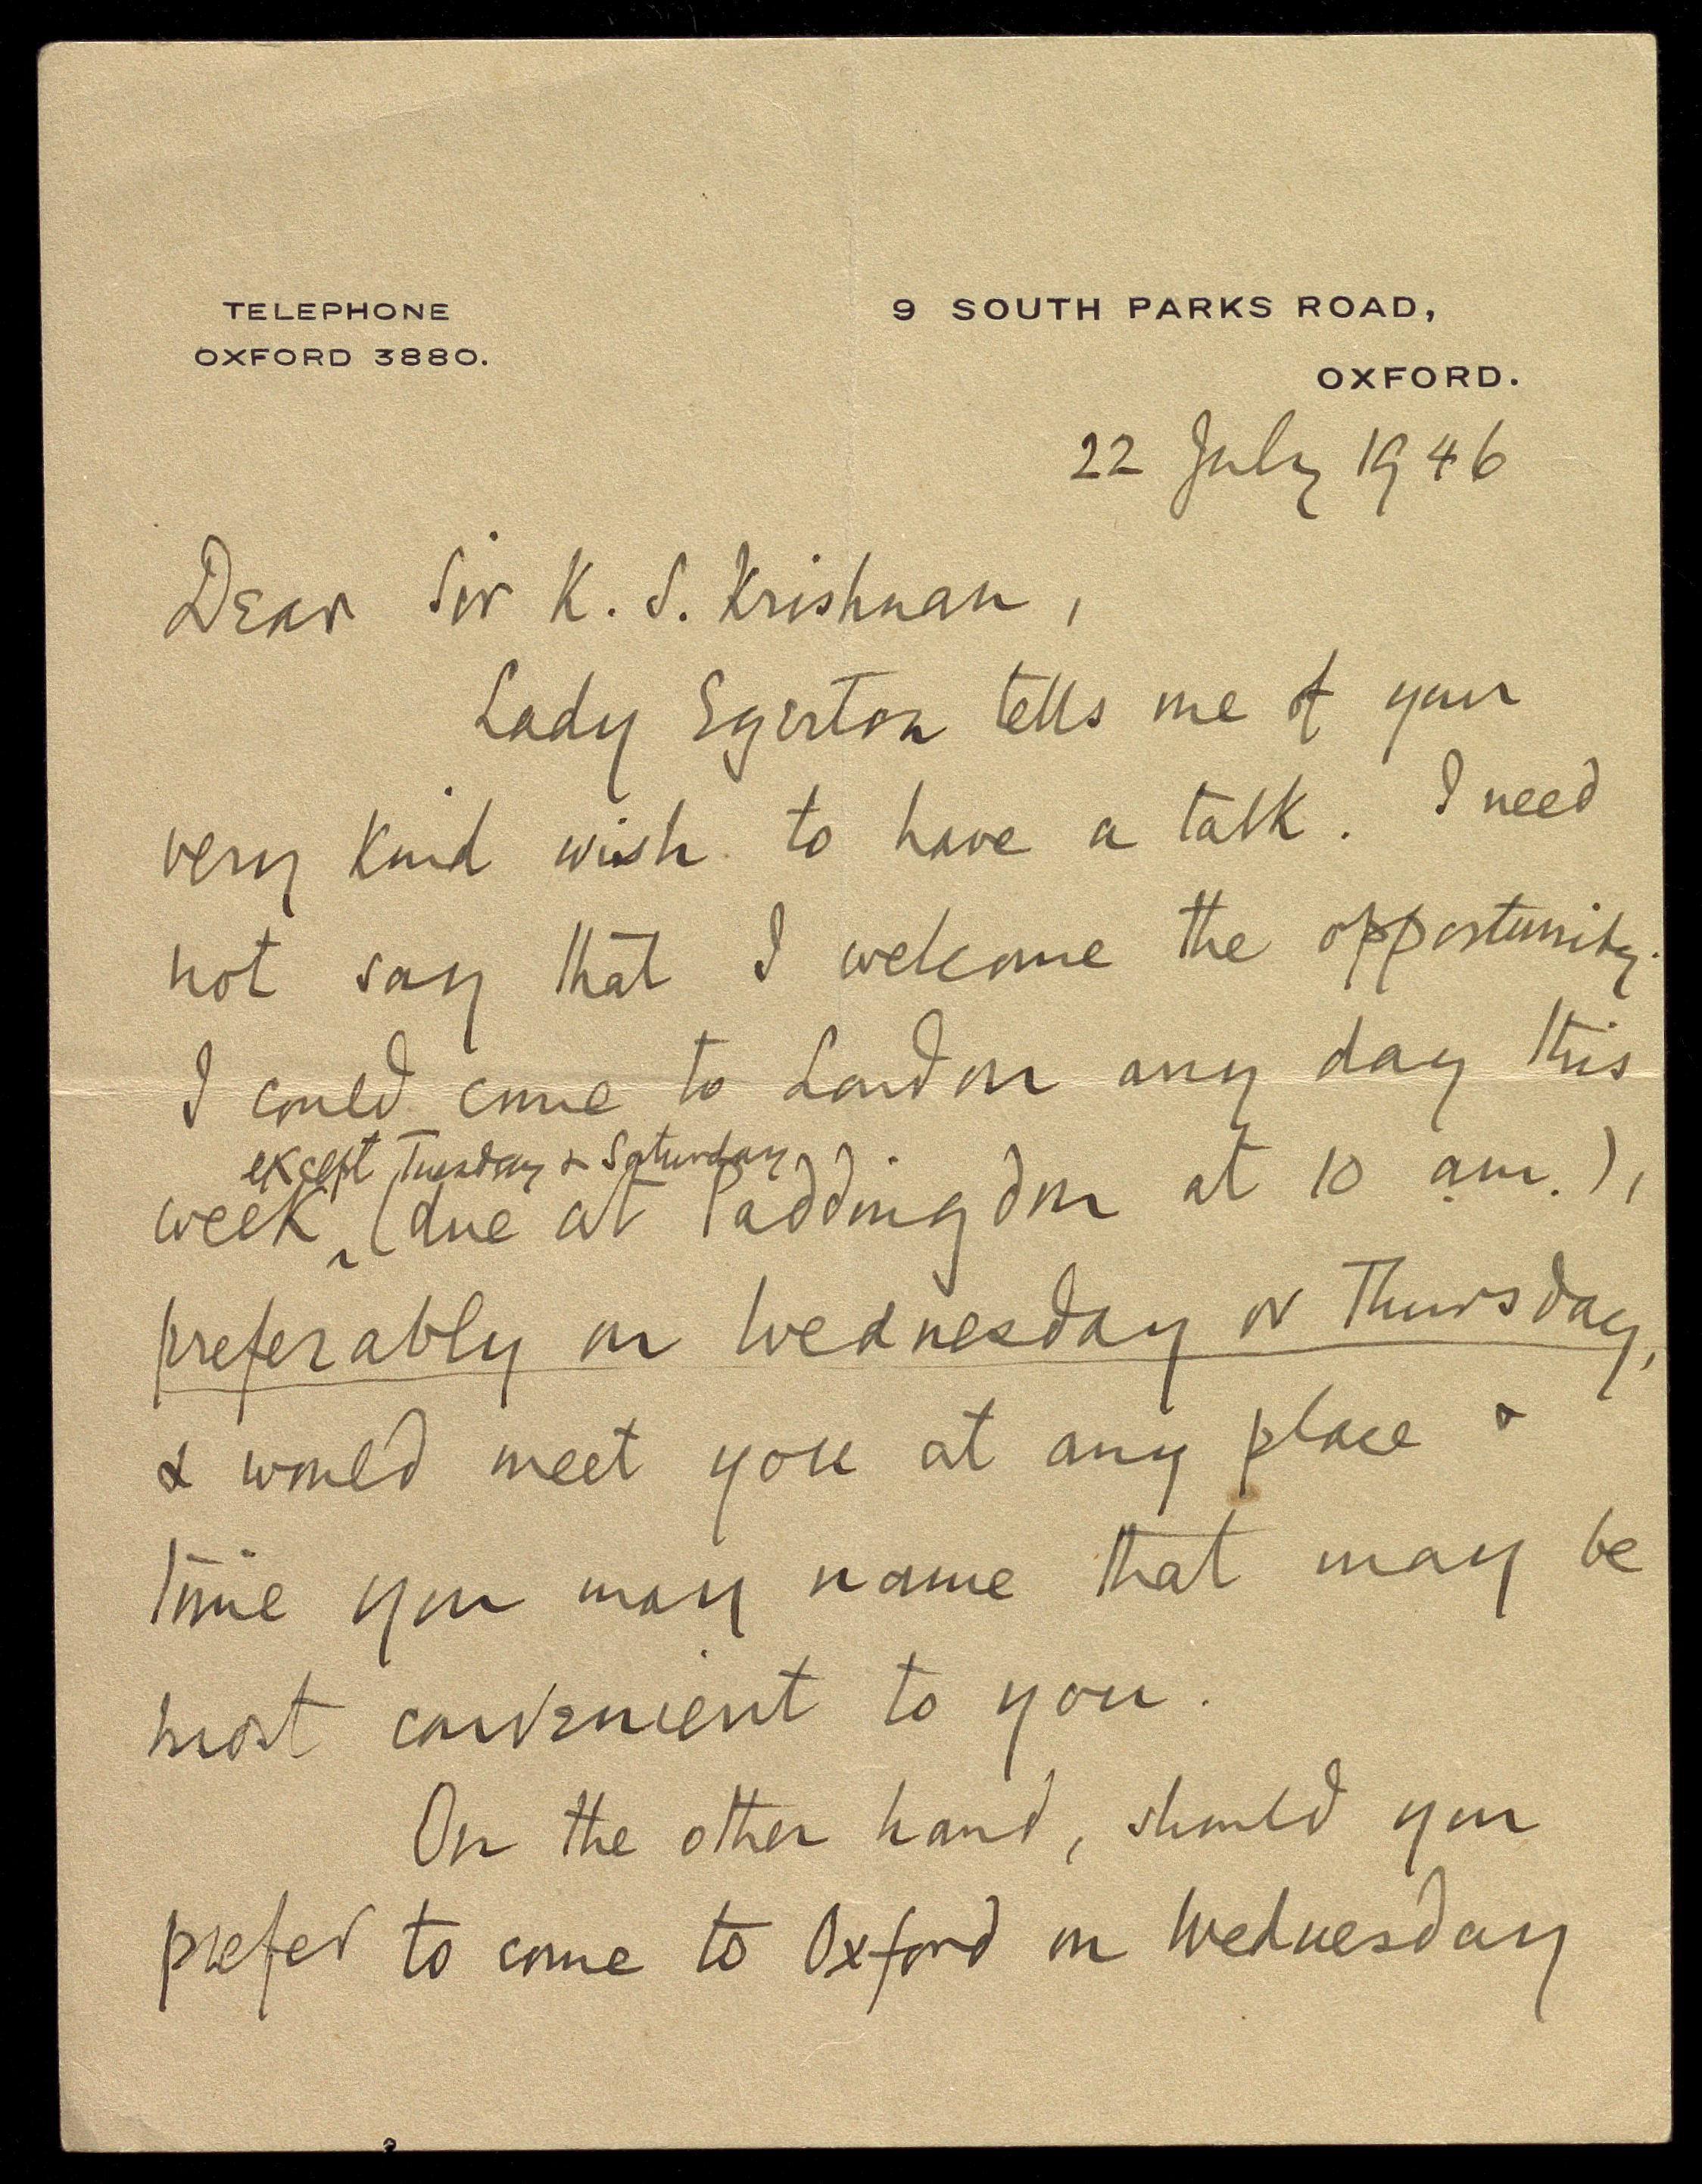 TELEPHONE
OXFORD 3880.
9 SOUTH PARKS ROAD,
OXFORD.
22 July 1946
Dear Sir K. S. Krishnan,
Lady Egerton tells me of your
very kind wish to have a talk. I need
not say that I welcome the opportunity.
I could come to London any day this
except Tuesday & Saturday
week (due at Paddington at 10 a.m.),
preferably on Wednesday or Thursday,
& would meet you at any place &
time you may name that may be
most convenient to you.
On the other hand, should you
prefer to come to Oxford on Wednesday